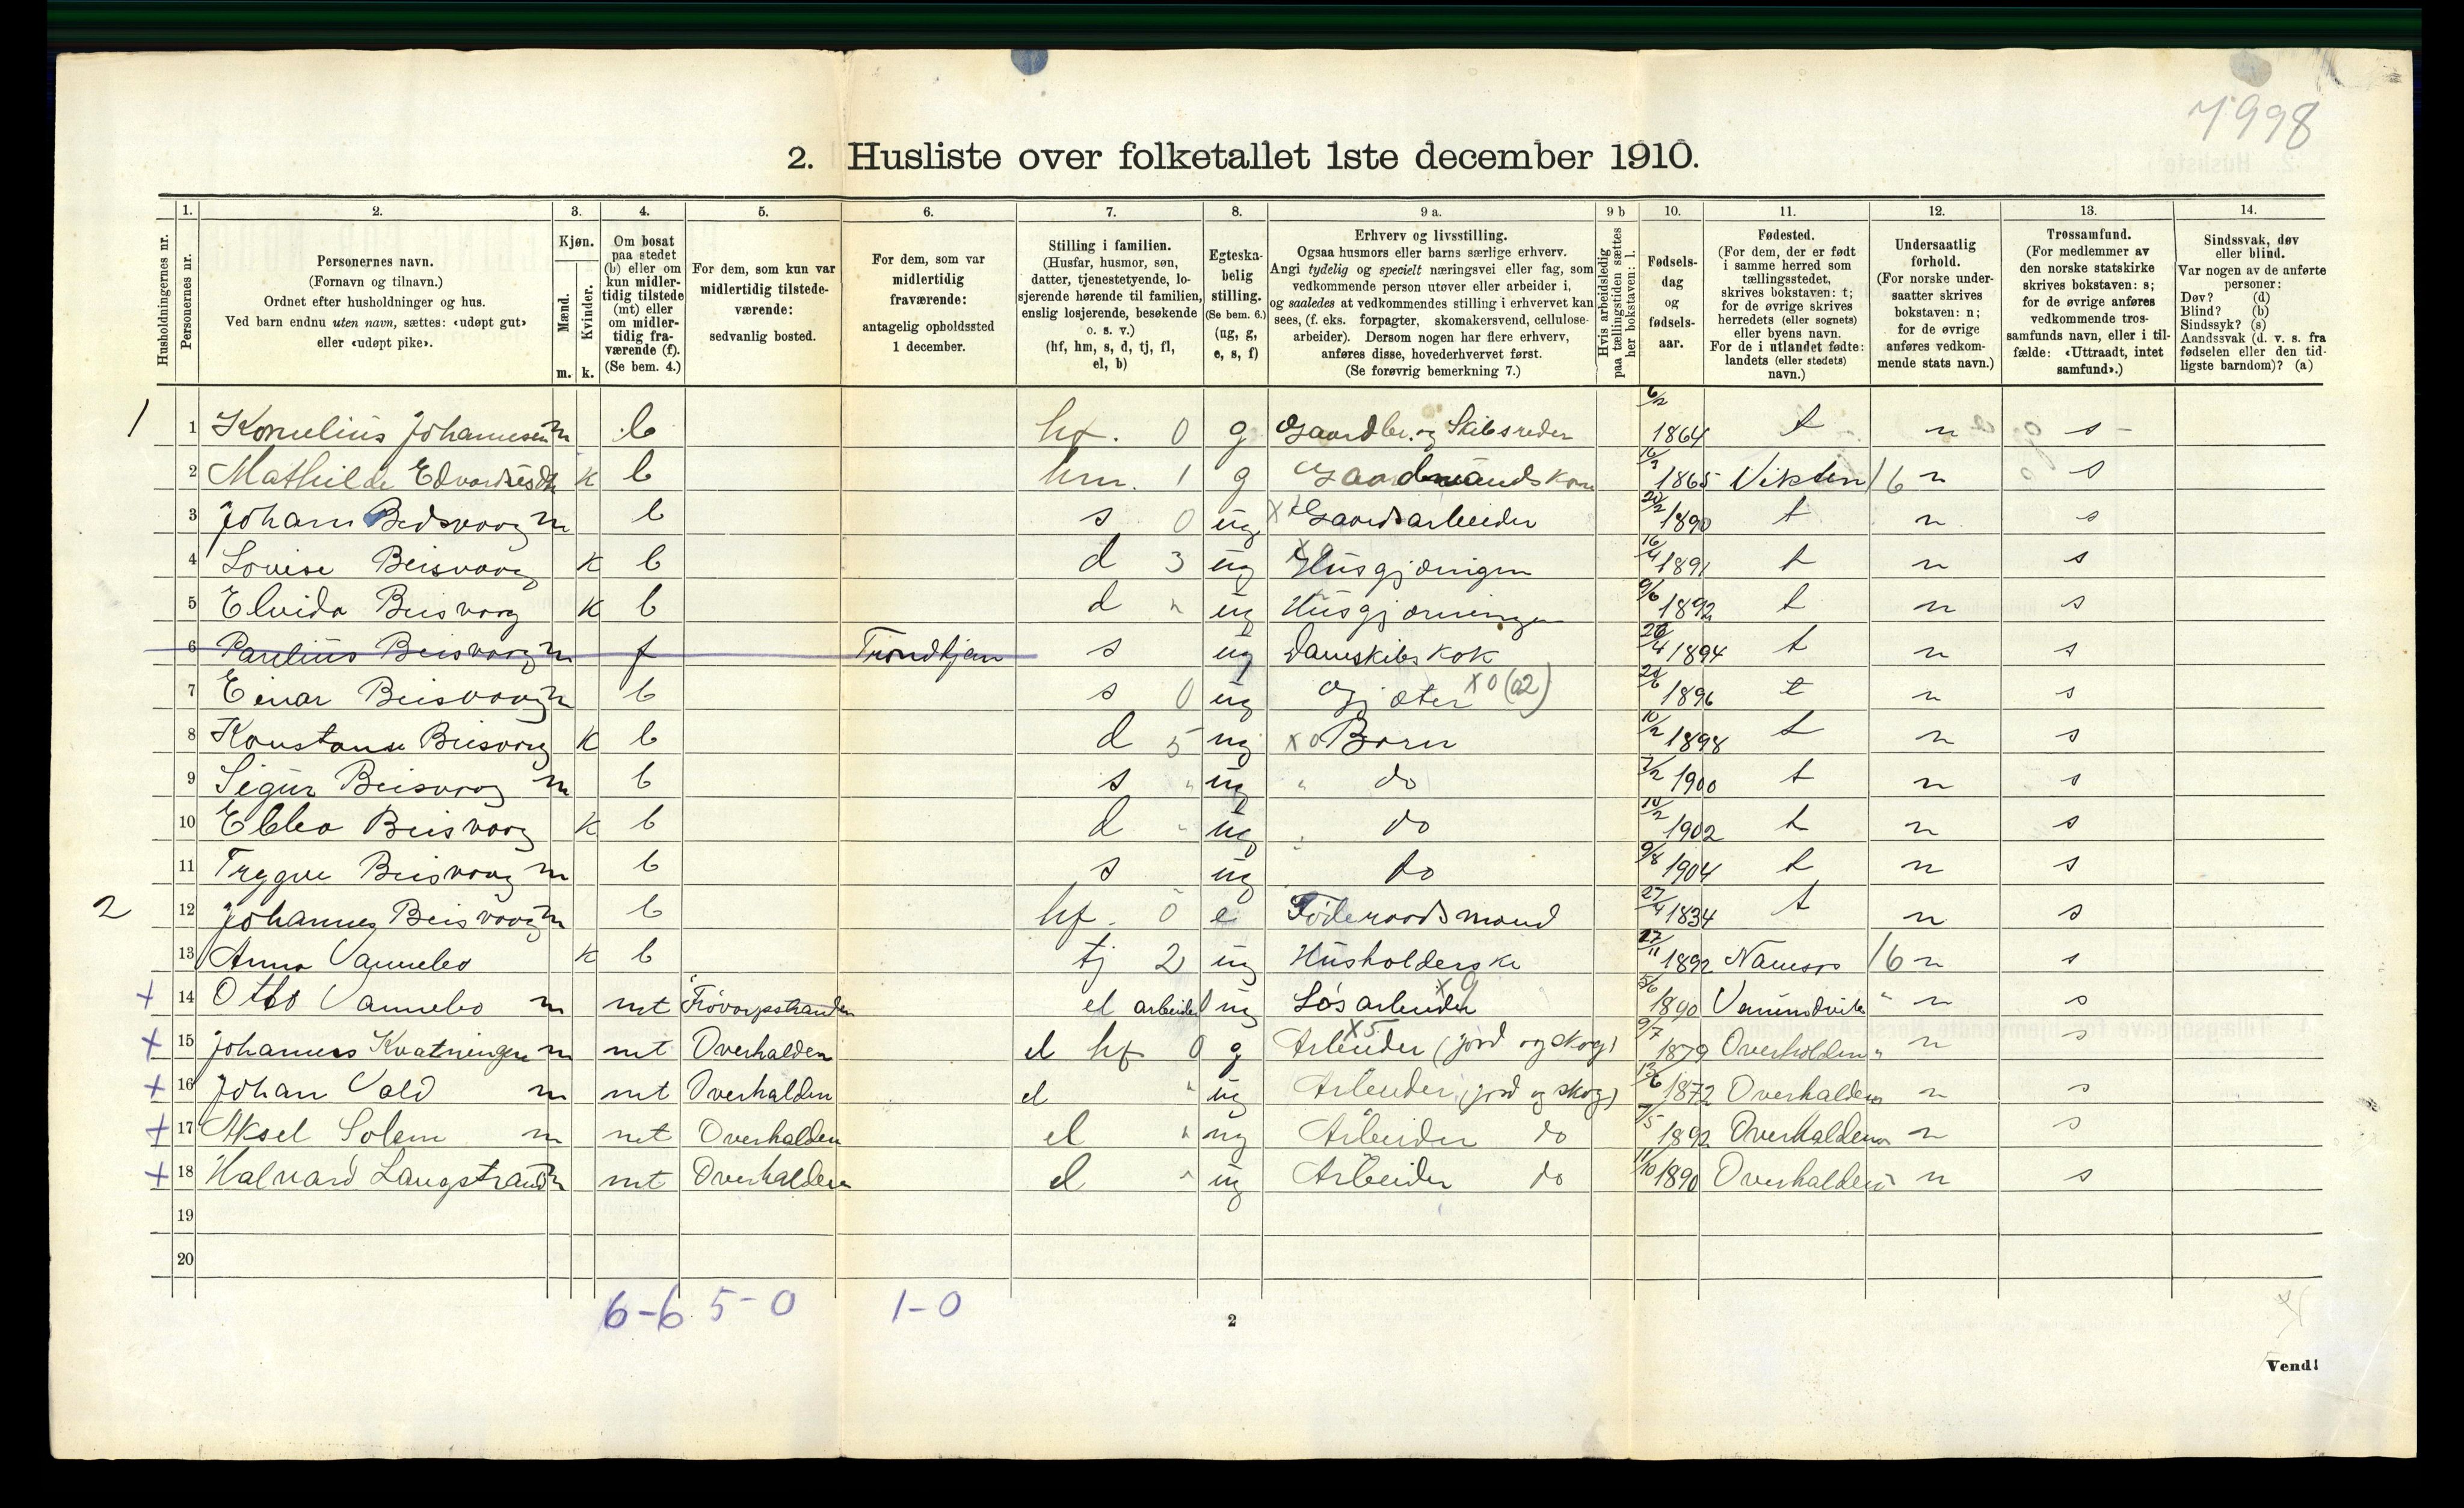 7998
2. Husliste over folketallet 1ste december 1910.
1. 2. 3. 4. 5. 6. 7. 8. 9 a. 9 b 10. 11. 12. 13. 14.
Husholdningernes nr.
Personernes nr.
Personernes navn.
(Fornavn og tilnavn.)
Ordnet efter husholdninger og hus.
Ved barn endnu uten navn, sættes: «udøpt gut»
eller «udøpt pike».
Kjøn.
Mænd.
Kvinder.
m. k.
Om bosat
paa stedet
(b) eller om
kun midler-
tidig tilstede
(mt) eller
om midler-
tidig fra-
værende (f).
(Se bem. 4.)
For dem, som kun var
midlertidig tilstede-
værende:
sedvanlig bosted.
For dem, som var
midlertidig
fraværende:
antagelig opholdssted
1 december.
Stilling i familien.
(Husfar, husmor, søn,
datter, tjenestetyende, lo-
sjerende hørende til familien,
enslig losjerende, besøkende
o. s. v.)
(hf, hm, s, d, tj, fl,
el, b)
Egteska-
belig
stilling.
(Se bem. 6.)
(ug, g,
e, s, f)
Erhverv og livsstilling.
Ogsaa husmors eller barns særlige erhverv.
Angi tydelig og specielt næringsvei eller fag, som
vedkommende person utøver eller arbeider i,
og saaledes at vedkommendes stilling i erhvervet kan
sees, (f. eks. forpagter, skomakersvend, cellulose-
arbeider). Dersom nogen har flere erhverv,
anføres disse, hovederhvervet først.
(Se forøvrig bemerkning 7.)
Hvis arbeidsledig
paa tællingstiden sættes
her bokstaven: l.
Fødsels-
dag
og
fødsels-
aar.
Fødested.
(For dem, der er født
i samme herred som
tællingsstedet,
skrives bokstaven: t;
for de øvrige skrives
herredets (eller sognets)
eller byens navn.
For de i utlandet fødte:
landets (eller stedets)
navn.)
Undersaatlig
forhold.
(For norske under-
saatter skrives
bokstaven: n;
for de øvrige
anføres vedkom-
mende stats navn.)
Trossamfund.
(For medlemmer av
den norske statskirke
skrives bokstaven: s;
for de øvrige anføres
vedkommende tros-
samfunds navn, eller i til-
fælde: «Uttraadt, intet
samfund».)
Sindssvak, døv
eller blind.
Var nogen av de anførte
personer:
Døv? (d)
Blind? (b)
Sindssyk? (s)
Aandssvak (d. v. s. fra
fødselen eller den tid-
ligste barndom)? (a)
1 1 Kornelius Johannesen m b hf. 0 g Gaardbr. og Skibsreder 6/2 1864 t n s
2 Mathilde k b hm. 1 g Gaardmandskone 1865 Vikten 16 n s
3 Johan m b s 0 ug Gaardsarbeider 20/2 1890 t n s
4 Lovise Beisvaag k b d 3 ug Husgjerningen 16/4 1891 t n s
5 Elvida Beisvaag k b d " ug Husgjerningen 9/6 1892 t n s
6 Paulius Beisvaag m f Trondhjem s ug Damskibskok 1894 t n s
7 Einar Beisvaag m b s 0 ug Gjæter x0 (02) 1896 t n s
8 Konstanse Beisvaag k b d 5 ug x0 Barn 10/2 1898 t n s
9 Sigur Beisvaag m b s " ug " do 7/2 1900 t n s
10 Ebba Beisvaag k b d " ug " do 10/2 1902 t n s
11 Trygve Beisvaag m b s ug do 9/8 1904 t n s
2 12 Johannes Beisvaag m b hf. 0 e Føderaadsmand 27/4 1834 t n s
13 Anna Vannebo k b tj 2 ug Husholderske 27/11 1892 Namsos 16 n s
+ 14 Otto Vannebo m mt el arbeider ug Løsarbeider 5/6 1890 " n s
+ 15 Johannes Kvatningen m mt Overhalden el hf 0 g x5 Arbeider (jord og skog) 9/7 1879 Overhalden " n s
+ 16 Johan Vold m mt Overhalden el " ug Arbeider (jord og skog) 13/6 1872 Overhalden n s
+ 17 Aksel Solem m mt Overhalden el " ug Arbeider do 7/5 1892 Overhalden n s
+ 18 Halvard Langstrand m mt Overhalden el " ug Arbeider do 11/10 1890 Overhalden n s
19
20
6-6 5-0 1-0
2
Vend!